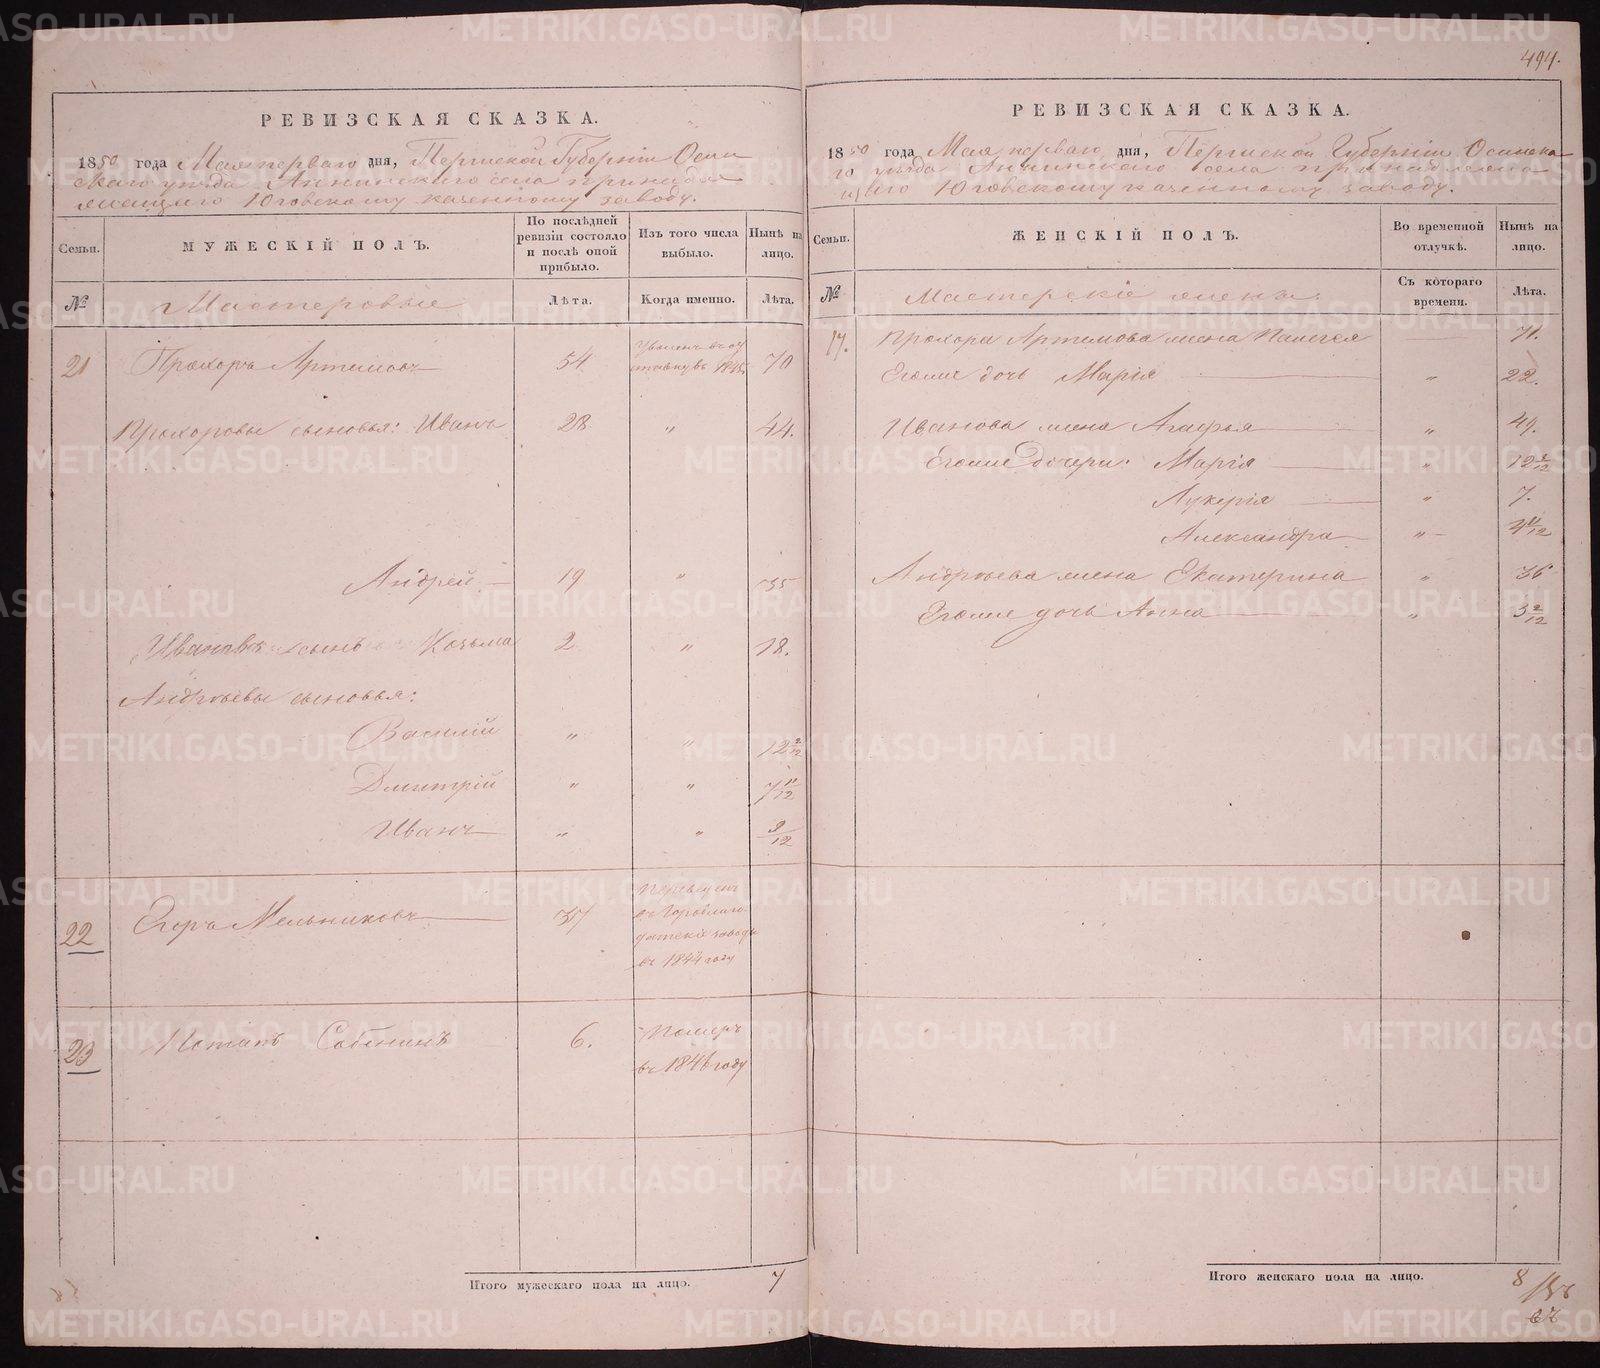 494.
РЕВИЗСКАЯ СКАЗКА.
1850 года Мая перваго дня, Пермской Губерніи Осин
скаго уѣзда Аннинскаго села принадле
жащаго Юговскому казенному заводу.
Семьи. МУЖЕСКІЙ ПОЛЪ. По послѣдней ревизіи состояло и послѣ оной прибыло. Изъ того числа выбыло. Нынѣ на лицо.
№ Мастеровые Лѣта. Когда именно. Лѣта.
21 Прохоръ Артемовъ 54 Уволенъ въ от
ставку въ 1845 70
Прохоровы сыновья: Иванъ 28 " 44.
Андрей 19 " 35
Ивановъ сынъ Козьма 2 " 18.
Андреевы сыновья:
Василій " " 12 2/12
Дмитрій " " 7 11/12
Иванъ " " 9/12
22 Егоръ Мельниковъ 37 Переведенъ
въ Гороблаго-
датскіе заводы
въ 1844 году
23 Потапъ Собенинъ 6. Померъ
въ 1846 году
Итого мужескаго пола на лицо. 7
РЕВИЗСКАЯ СКАЗКА.
1850 года Мая перваго дня, Пермской Губерніи Осинска
го уѣзда Аннинскаго села принадлежа
щаго Юговскому казенному заводу.
Семьи. ЖЕНСКІЙ ПОЛЪ. Во временной отлучкѣ. Нынѣ на лицо.
№ Мастерскіе жены. Съ котораго времени. Лѣта.
Прохора Артемова жена Палагея 71.
Егоже дочь Марія " 22.
Иванова жена Агафья " 49.
Егоже дочери: Марія " 12 2/12
Лукерія " 7.
Александра " 4 11/12
Андреева жена Екатерина " 36
Егоже дочь Анна " 3 2/12
Итого женскаго пола на лицо. 8
METRIKI.GASO-URAL.RU